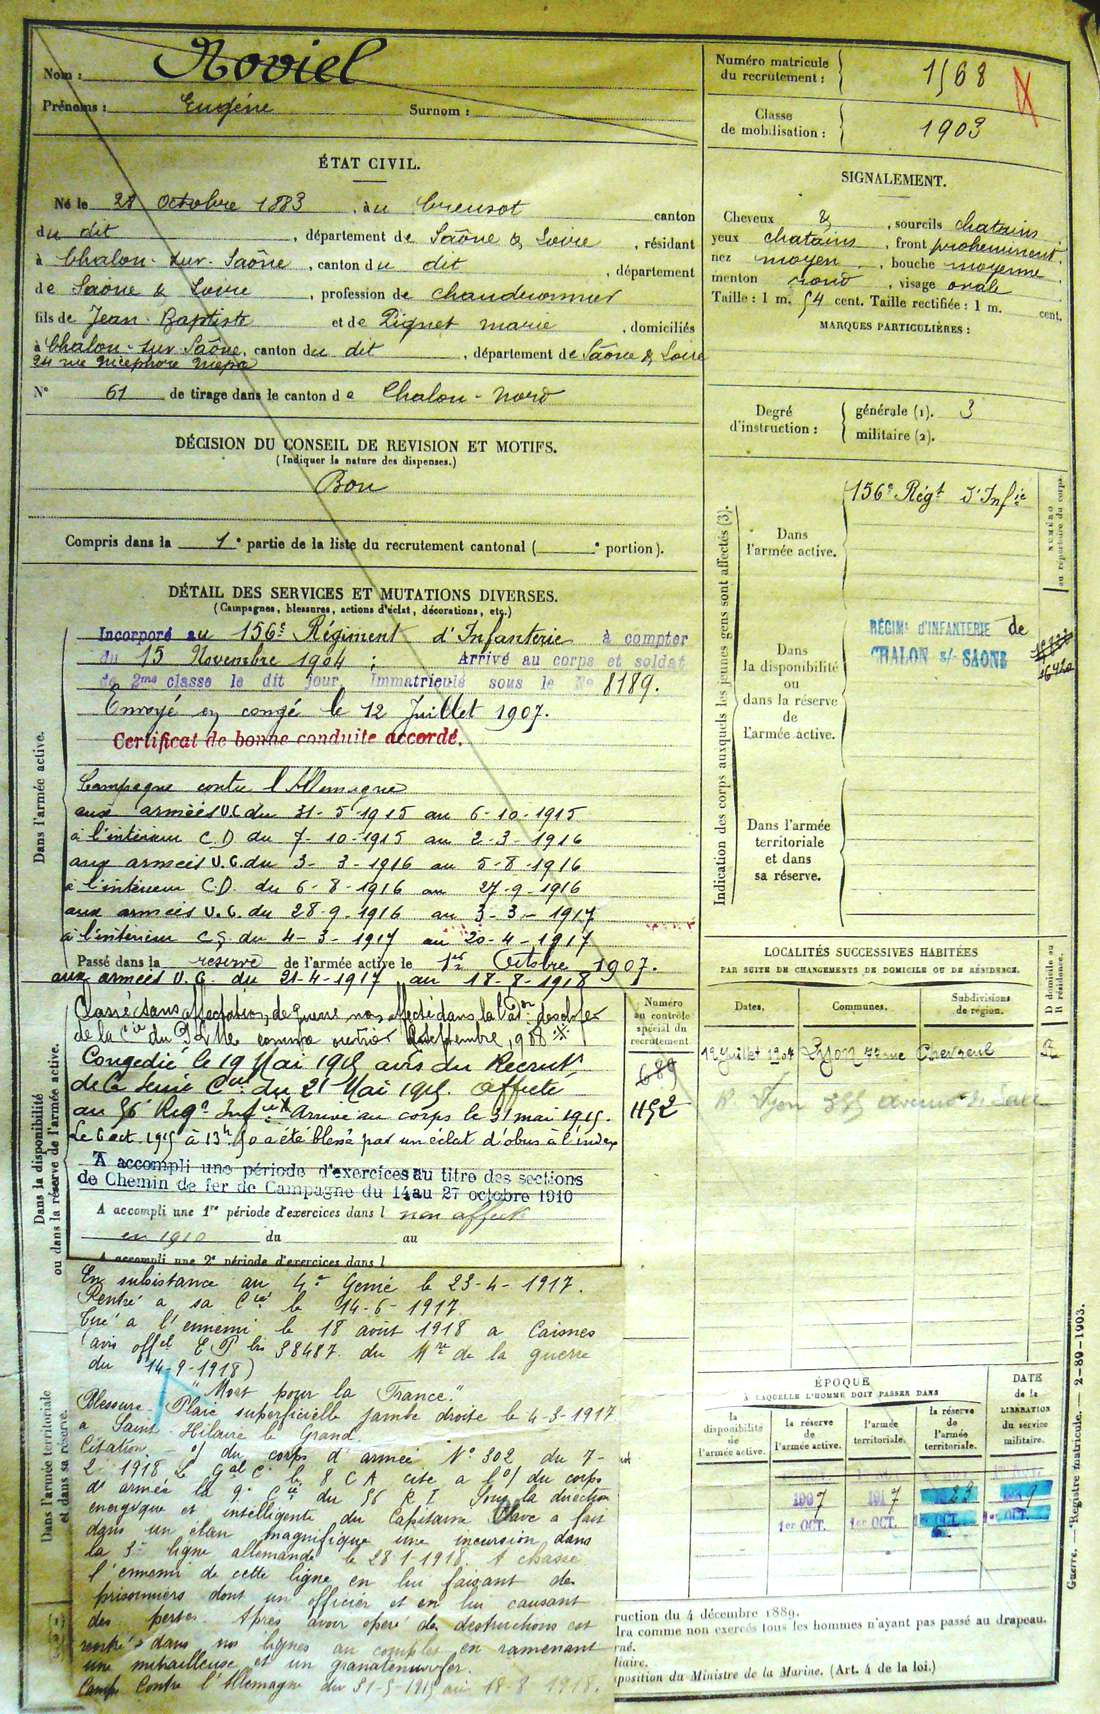 Nom : Noviel
Prénoms : Eugène Surnom :
Numéro matricule du recrutement : 1568
Classe de mobilisation : 1903
ÉTAT CIVIL.
Né le 28 Octobre 1883, à u Creusot canton
du dit, département de Saône & Loire, résidant
à Chalon-sur-Saône, canton du dit, département
de Saône & Loire, profession de chaudronnier
fils de Jean-Baptiste et de Piguet Marie, domiciliés
à Chalon-sur-Saône, canton du dit, département de Saône & Loire
24 rue Nicéphore Niepce
N° 61 de tirage dans le canton de Chalon-Nord
SIGNALEMENT.
Cheveux &, sourcils chatains
yeux chatains, front proheminent.
nez moyen, bouche moyenne
menton rond, visage ovale
Taille : 1 m. 54 cent. Taille rectifiée : 1 m. cent.
MARQUES PARTICULIÈRES :
Degré d'instruction : générale (1). 3
militaire (2).
DÉCISION DU CONSEIL DE REVISION ET MOTIFS.
(Indiquer la nature des dispenses.)
Bon
Compris dans la 1e partie de la liste du recrutement cantonal ( e portion).
DÉTAIL DES SERVICES ET MUTATIONS DIVERSES.
(Campagnes, blessures, actions d'éclat, décorations, etc.)
Dans l'armée active.
Incorporé au 156e Régiment d'Infanterie à compter
du 15 Novembre 1904 ; Arrivé au corps et soldat
de 2me classe le dit jour. Immatriculé sous le No 8189.
Envoyé en congé le 12 Juillet 1907.
Certificat de bonne conduite accordé.
Campagne contre l'Allemagne
aux armées U.C. du 31-5-1915 au 6-10-1915
à l'intérieur C.D du 7-10-1915 au 2-3-1916
aux armées U.C. du 3-3-1916 au 5-8-1916
à l'intérieur C.D. du 6-8-1916 au 27-9-1916
aux armées U.C. du 28-9-1916 au 3-3-1917
à l'intérieur C.S. du 4-3-1917 au 20-4-1917
Passé dans la reserve de l'armée active le 1er Octobre 1907.
aux armées U.C. du 21-4-1917 au 18-8-1918
Dans la disponibilité ou dans la réserve de l'armée active.
Classé sans affectation, de guerre non affecté dans la
de la Cie du P.L.M. comme ouvrier Septembre, 1908
Congédié le 19 Mai 1915 avis du Recrut
de la Seine Cer du 21 Mai 1915. Affecté
au 56e Régt Infie Arrivé au corps le 31 mai 1915.
Le 6 oct. 1915 à 13h a été blessé par un éclat d'obus à l'index
A accompli une période d'exercices au titre des sections
de Chemin de fer de Campagne du 14 au 27 octobre 1910
A accompli une 1re période d'exercices dans l non affecté
en 1910 du au
A accompli une 2e période d'exercices dans l
Numéro au contrôle spécial du recrutement
689
1152
En subsistance au 4e Genie le 23-4-1917.
Rentré a sa Cie le 14-6-1917.
Tué a l'ennemi le 18 août 1918 a Caisnes
(avis offel E P bis 38487 du Mre de la guerre
du 14-9-1918)
"Mort pour la France."
Blessure. Plaie superficielle jambe droite le 4-3-1917
a Saint-Hilaire le Grand.
Citation - o/ du corps d'armée N° 302 du 7-
2 1918 Le Gal Ct le 8 C A cite a l'o/ du corps
d'armée la 9e Cie du 56 R I Sous la direction
energique et intelligente du Capitaine a fait
dans un élan magnifique une incursion dans
la 3e ligne allemande le 28-1-1918. A chassé
l'ennemi de cette ligne en lui faisant des
prisonniers dont un officier et en lui causant
des pertes Après avoir opéré des destructions est
rentrée dans nos lignes au complet en ramenant
une mitrailleuse et un granatenwerfer.
Camp Contre l'Allemagne du 31-5-1915 au 18-8 1918.
Dans l'armée territoriale et dans sa réserve.
Indication des corps auxquels les jeunes gens sont affectés (3).
Dans l'armée active. 156e Régt d'Infie
NUMÉRO au répertoire du corps.
Dans la disponibilité ou dans la réserve de l'armée active.
RÉGIMt D'INFANTERIE de
CHALON s/- SAONE
Dans l'armée territoriale et dans sa réserve.
LOCALITÉS SUCCESSIVES HABITÉES
PAR SUITE DE CHANGEMENTS DE DOMICILE OU DE RÉSIDENCE.
Dates. Communes. Subdivisions de région. D domicile ou R résidence.
12 Juillet 1907 Lyon rue Chevreul R
R. Lyon
ÉPOQUE
À LAQUELLE L'HOMME DOIT PASSER DANS
la disponibilité de l'armée active.
la réserve de l'armée active.
l'armée territoriale.
la réserve de l'armée territoriale.
DATE de la LIBERATION du service militaire.
1907 1917 1923 1929
1er OCT. 1er OCT. 1er OCT. 1er OCT.
ruction du 4 décembre 1889.
dra comme non exercés tous les hommes n'ayant pas passé au drapeau.
rné.
liaire.
position du Ministre de la Marine. (Art. 4 de la loi.)
Guerre. — Registre matricule. — 2-89-1903.